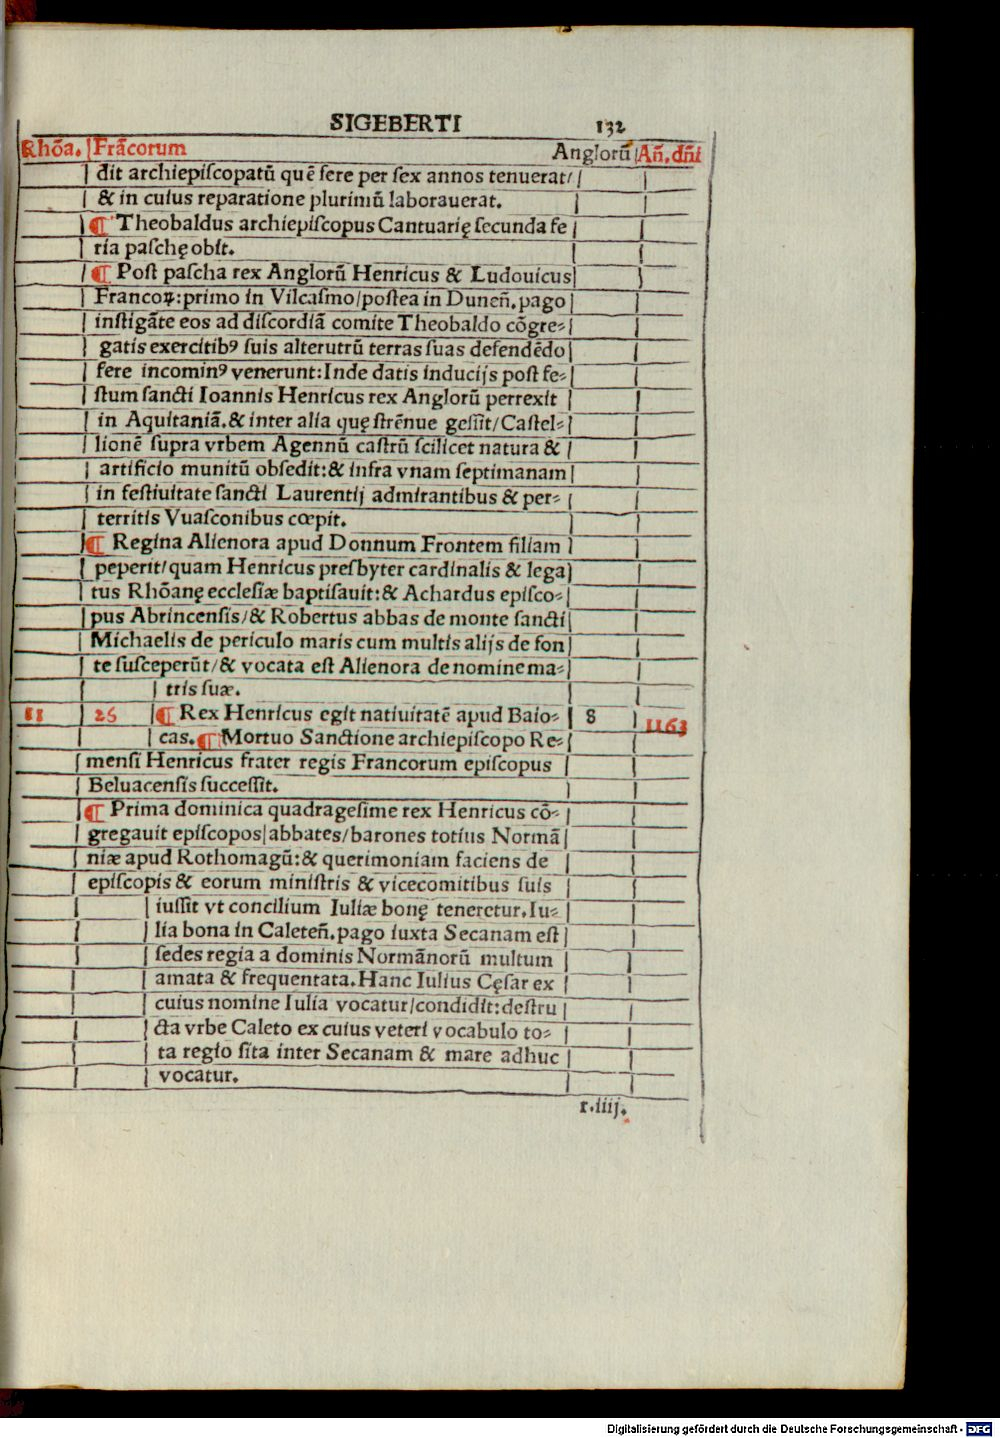 SIGEBERTI 132
Rhõa. Frãcorum Anglorũ Añ. dñi
dit archiepiſcopatũ quẽ fere per ſex annos tenuerat/
& in cuius reparatione plurimũ laborauerat.
¶ Theobaldus archiepiſcopus Cantuarię ſecunda fe
ria paſchę obĳt.
¶ Poſt paſcha rex Anglorũ Henricus & Ludouicus
Francoꝝ: primo in Vilcaſmo/poſtea in Duneñ. pago
inſtigãte eos ad diſcordiã comite Theobaldo cõgre⸗
gatis exercitibꝰ ſuis alterutrũ terras ſuas defendẽdo
fere incominꝰ venerunt: Inde datis inducijs poſt fe⸗
ſtum ſancti Ioannis Henricus rex Anglorũ perrexit
in Aquitaniã. & inter alia quę ſtrẽnue geſſit/Caſtel⸗
lionẽ ſupra vrbem Agennũ caſtrũ ſcilicet natura &
artificio munitũ obſedit: & infra vnam ſeptimanam
in feſtiuitate ſancti Laurentij admirantibus & per⸗
territis Vuaſconibus cœpit.
¶ Regina Alienora apud Donnum Frontem filiam
peperit/quam Henricus preſbyter cardinalis & lega
tus Rhõanę eccleſiæ baptiſauit: & Achardus epiſco⸗
pus Abrincenſis/& Robertus abbas de monte ſancti
Michaelis de periculo maris cum multis alijs de fon
te ſuſceperũt/& vocata eſt Alienora de nomine ma⸗
tris ſuæ.
81 26 ¶ Rex Henricus egit natiuitatẽ apud Baio⸗ 8 1163
cas. ¶ Mortuo Sanctione archiepiſcopo Re⸗
menſi Henricus frater regis Francorum epiſcopus
Beluacenſis ſucceſſit.
¶ Prima dominica quadrageſime rex Henricus cõ⸗
gregauit epiſcopos|abbates/barones totius Normã
niæ apud Rothomagũ: & querimoniam faciens de
epiſcopis & eorum miniſtris & vicecomitibus ſuis
iuſſit vt concilium Iuliæ bonę teneretur. Iu⸗
lia bona in Caleteñ. pago iuxta Secanam eſt
ſedes regia a dominis Normãnorũ multum
amata & frequentata. Hanc Iulius Cęſar ex
cuius nomine Iulia vocatur/condidit: deſtru
cta vrbe Caleto ex cuius veteri vocabulo to⸗
ta regio ſita inter Secanam & mare adhuc
vocatur.
r.iiij.
Digitalisierung gefördert durch die Deutsche Forschungsgemeinschaft - DFG